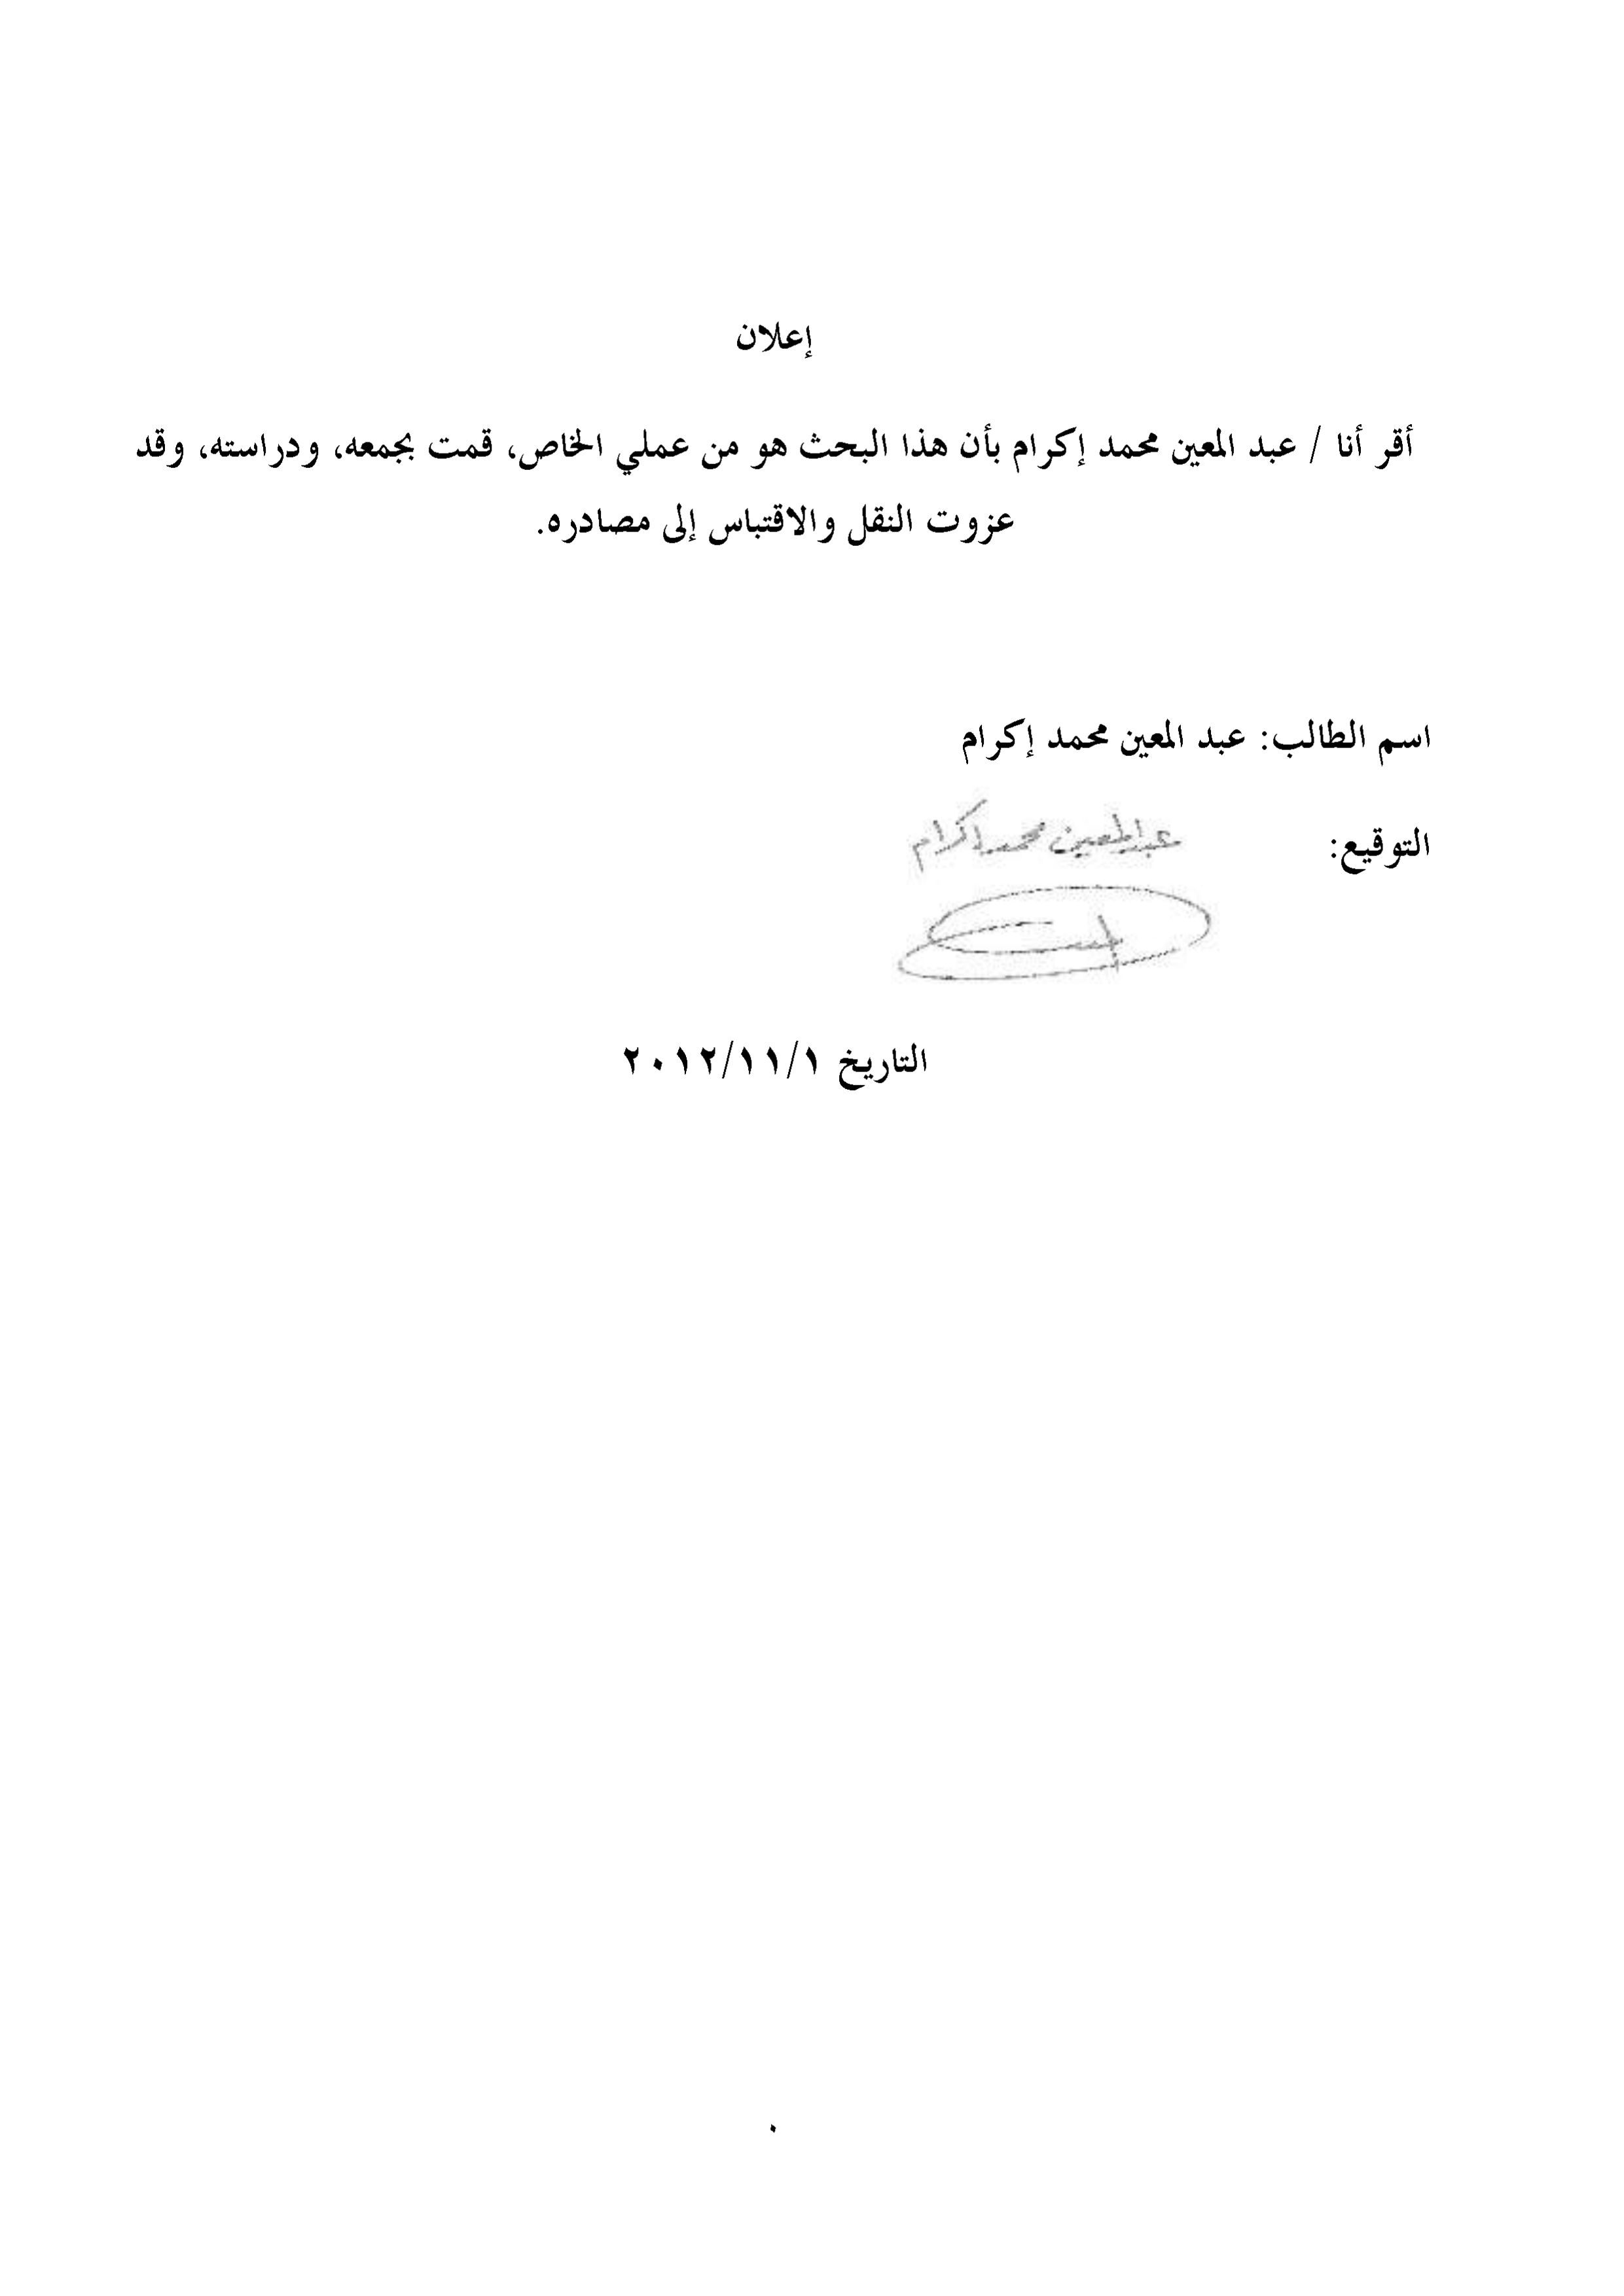 إعلان
أقر أنا / عبد المعين محمد إكرام بأن هذا البحث هو من عملي الخاص، قمت بجمعه، ودراسته، وقد
عزوت النقل والاقتباس إلى مصادره.
اسم الطالب: عبد المعين محمد إكرام
التوقيع: عبدالمعين محمد اكرام
التاريخ ٢٠١٢/١١/١
٠